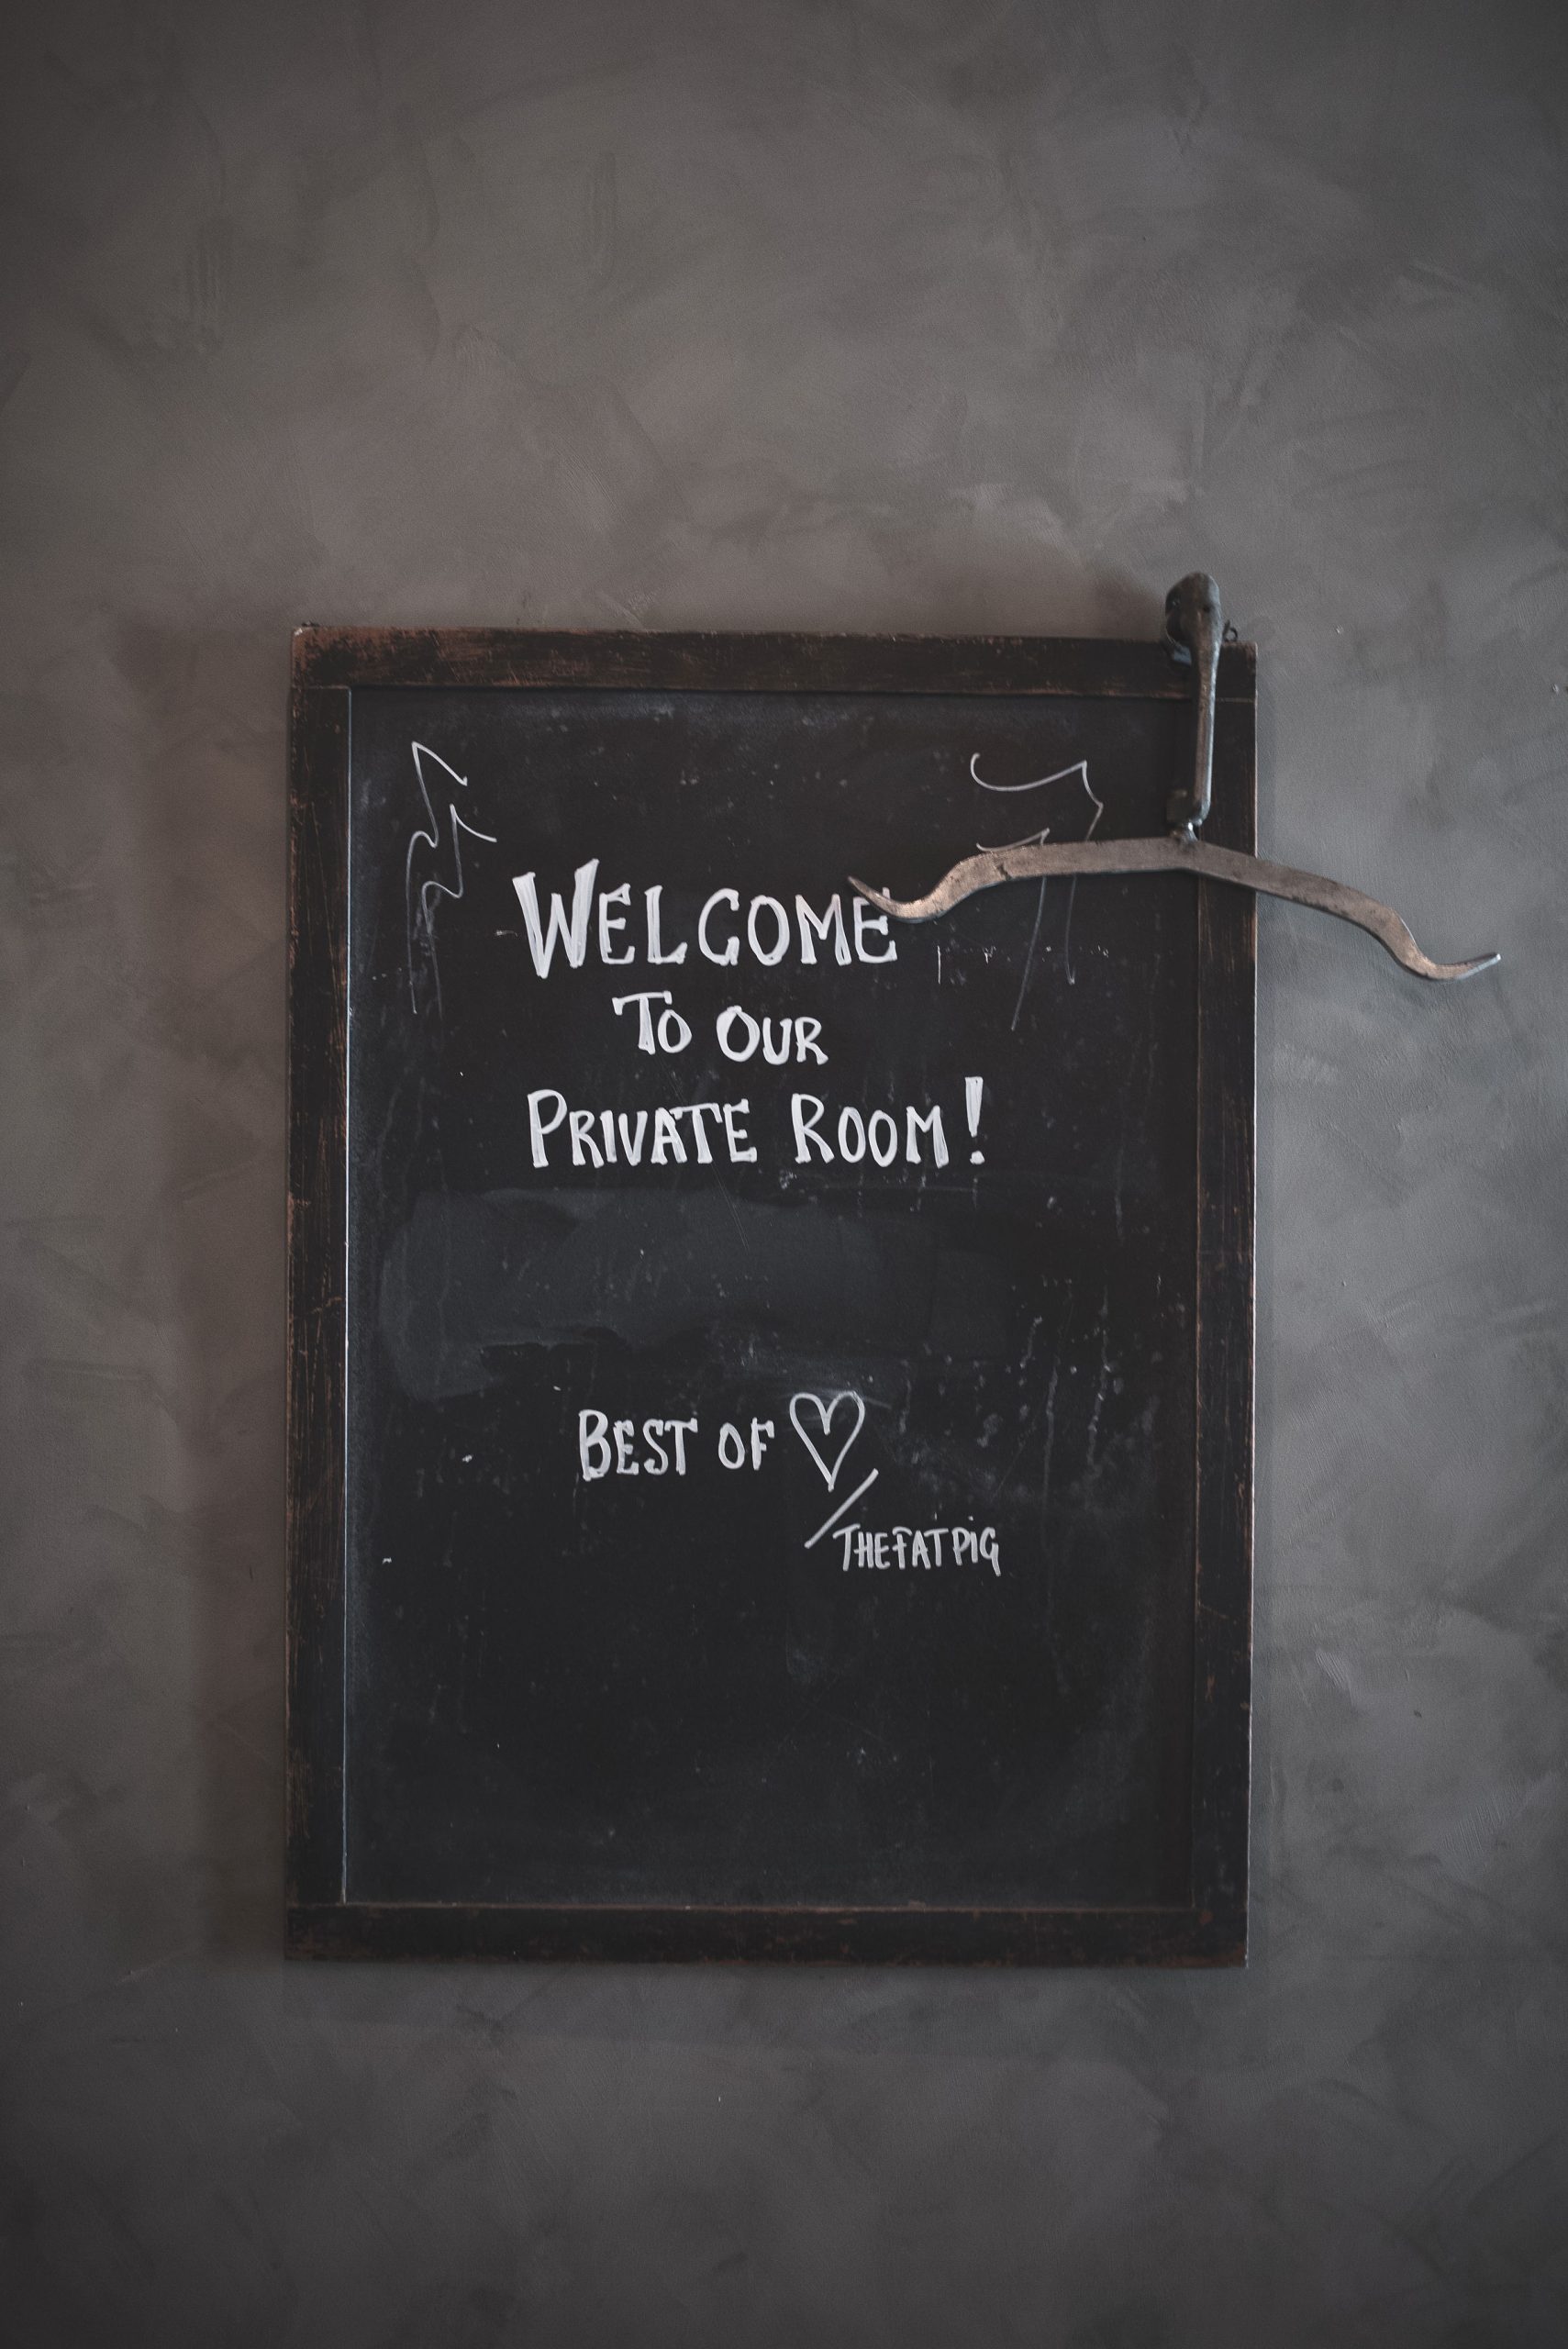 WELCOME
TO OUR
PRIVATE ROOM!
BEST OF ♡
/THEFATPIG